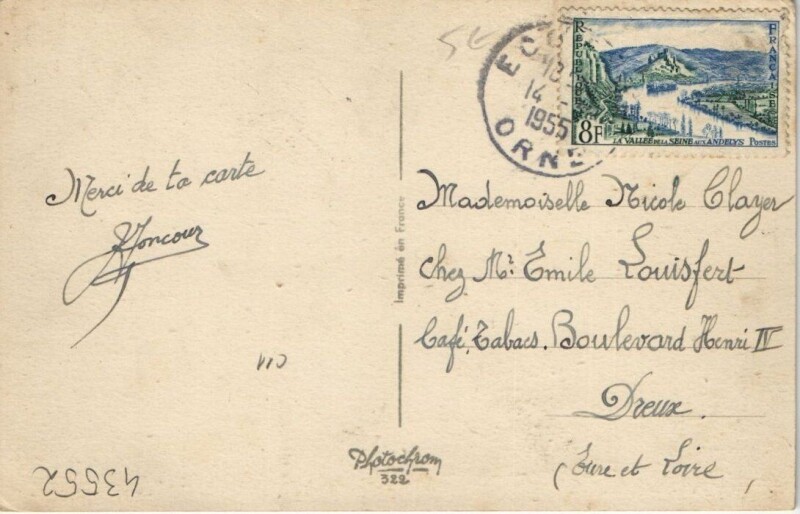 Merci de ta carte
Imprimé en France
Photochrom
322
43552
ORNE
14
1955
RÉPUBLIQUE FRANÇAISE
8F
LA VALLÉE DE LA SEINE AUX ANDELYS POSTES
Mademoiselle Nicole Clayer
chez Mr. Emile Louisfert
Café, Tabacs. Boulevard Henri IV
Dreux.
Eure et Loire